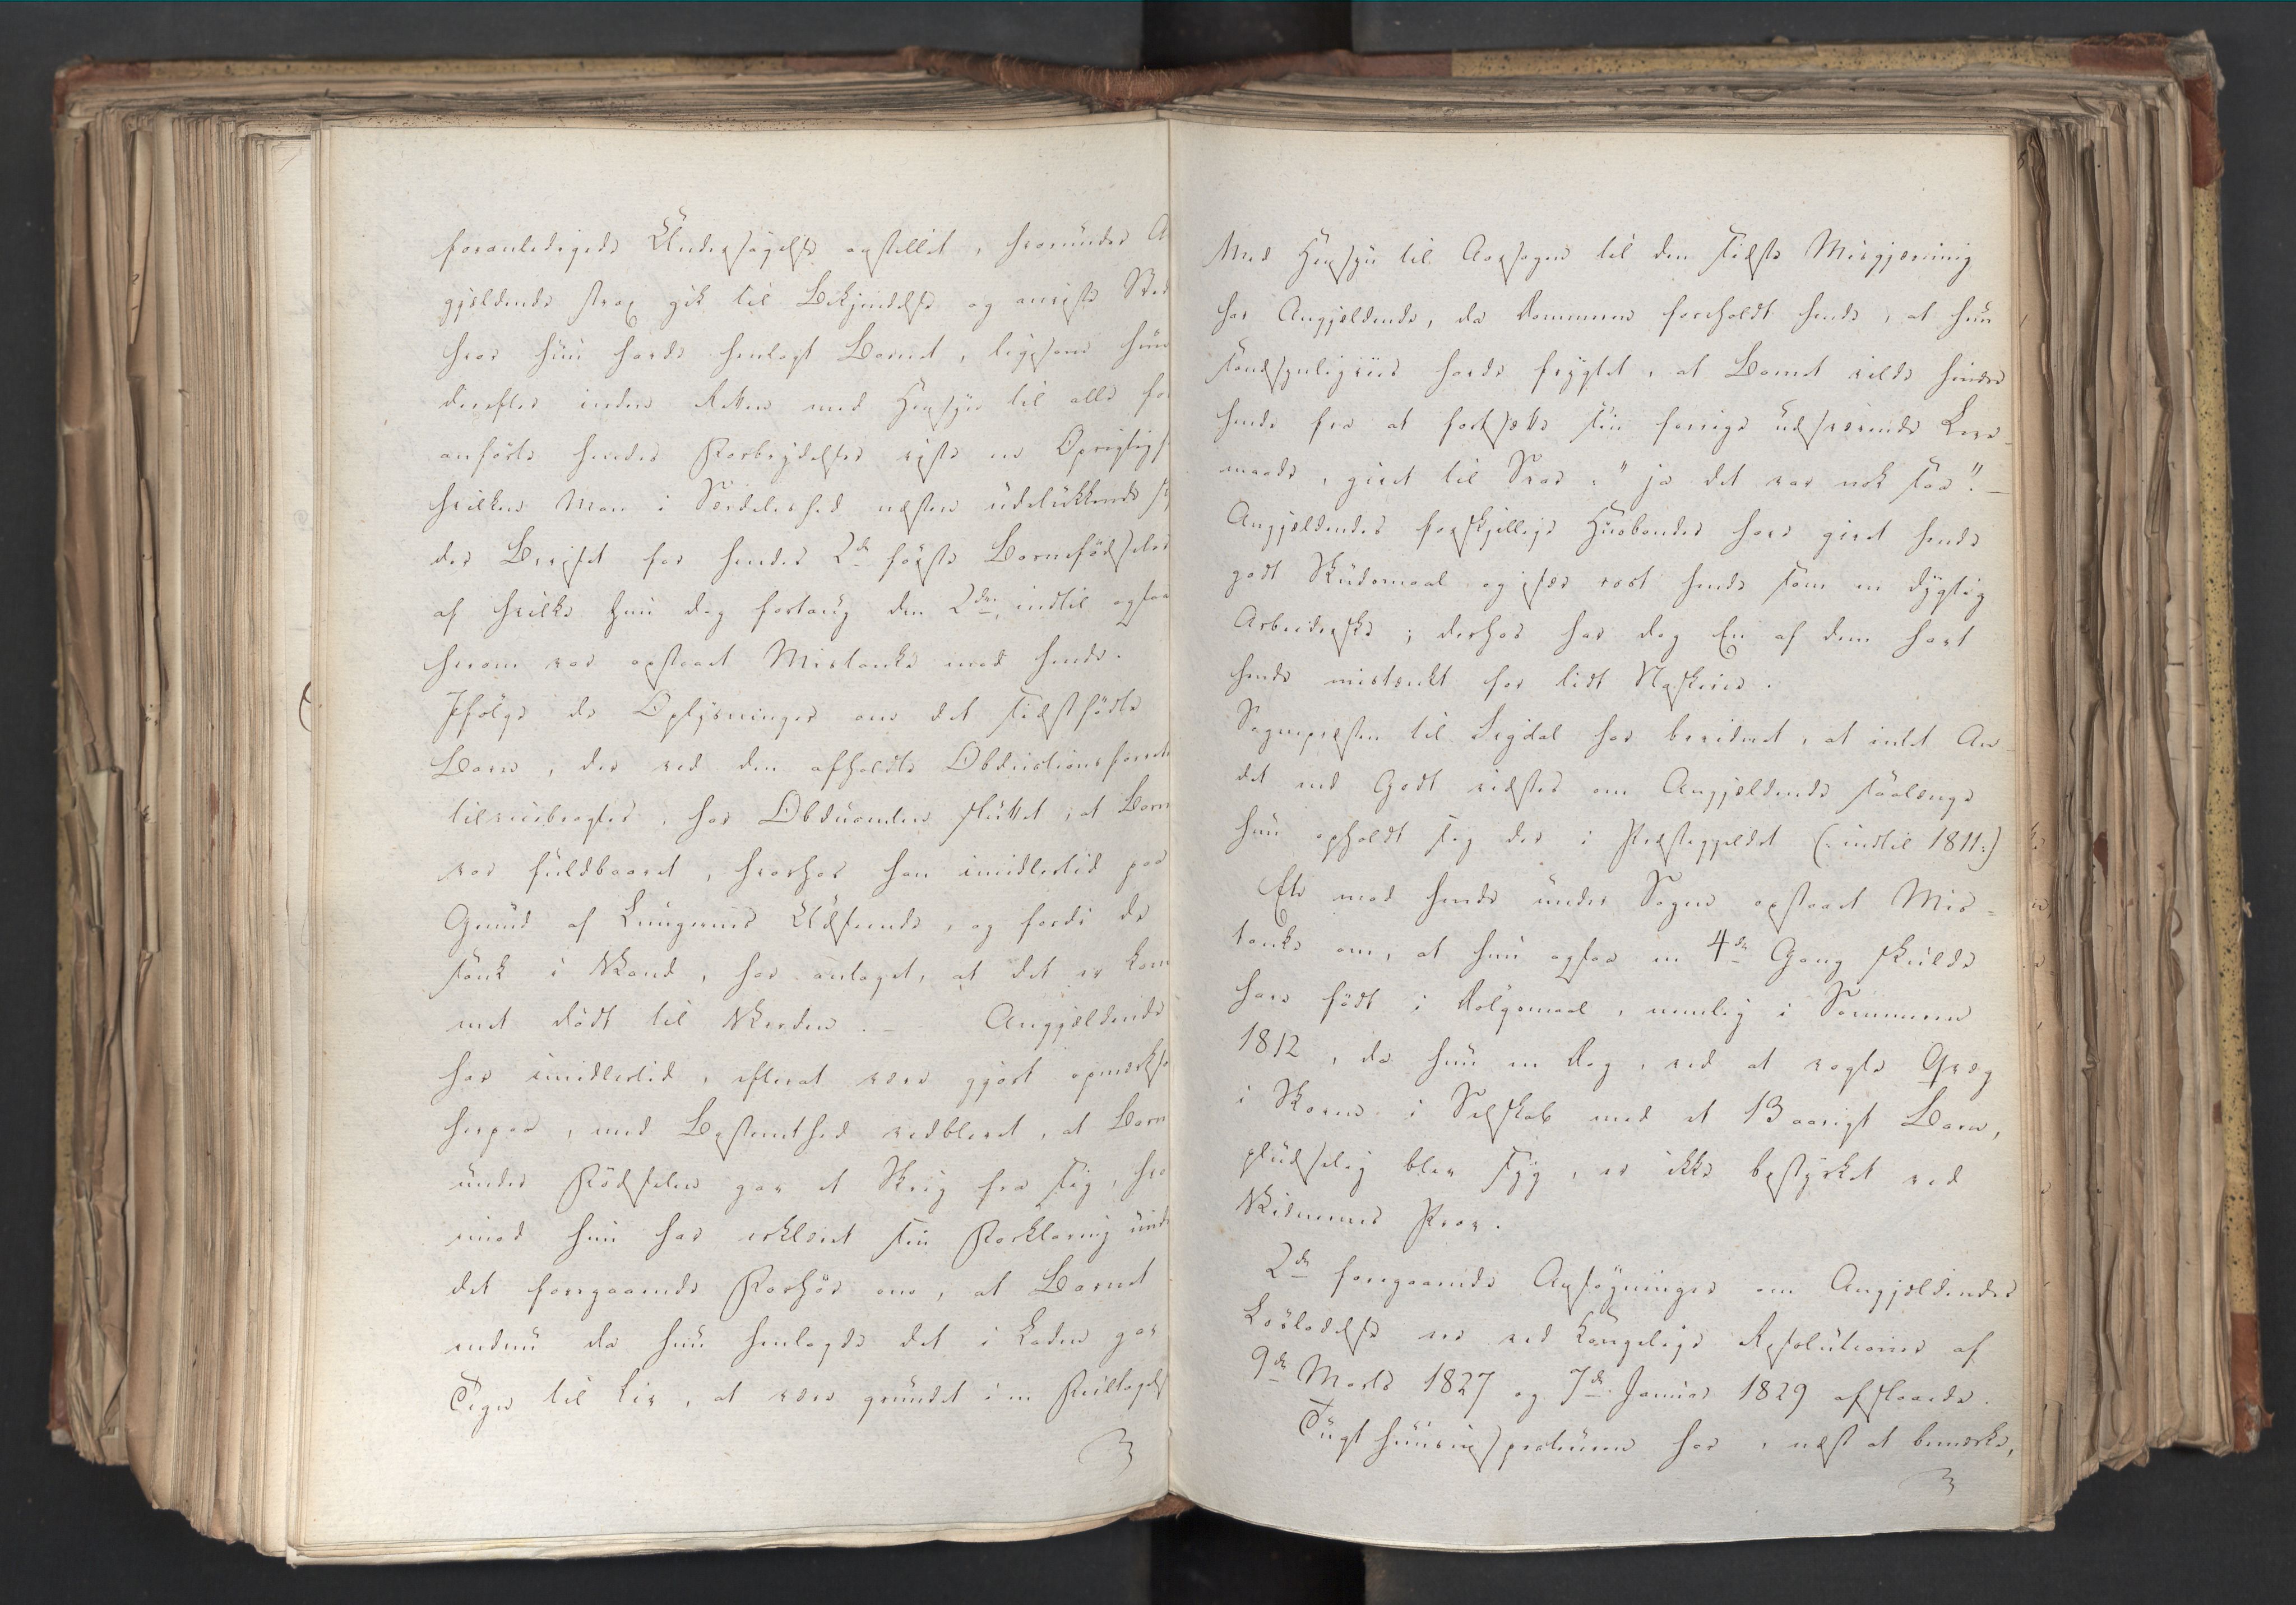 foranledigede Undersøgelse anstillet, hvorunder A
gjeldende strax gik til Bekjendelse og anviste Sted
hvor hun havde henlagt Barnet, ligesom hun
derefter inden Retten med Hensyn til alle for
anførte hendes Forbrydelser viste en Oprigtigh
hvilken Man i Særdeleshed næsten udelukkende
der Beviset for hendes 2de første Barnefødseler
af hvilke hun dog fortaug den 2den, indtil ogsaa
herom var opstaaet Mistanke mod hende.
Ifølge de Oplysninger om det sidstfødte
Barn, der ved den afholdte Obductionsforret
tilveiebragtes, har Obducenten sluttet, at Barn
var fuldbaaret, hvorhos han imidlertid paa
Grund af Lungernes Udseende, og fordi de
sank i Vand, har antaget, at det er kom
met dødt til Verden. – Angjældende
har imidlertid, efterat være gjort opmærkso
herpaa, med Bestemthed vedblevet, at Barn
under Fødselen gav et Skrig fra sig, hvo
imod hun har erklæret sin Forklaring und
det foregaaende Forhør om, at Barnet
endnu da hun henlagde det i Laden gav
Tegn til Liv, at være grundet i en Feiltagels
Med Hensyn til Aarsagen til den sidste Misgjerning
har Angjældende, da Dommeren foreholdt hende, at hun
sandsynligviis havde frygtet, at Barnet vilde hindre
hende fra at fortsætte sin forrige udsvævende Leve-
maade, givet til Svar: "ja det var nok saa". –
Angjældendes forskjellige Huusbonder have givet hende
godt Skudsmaal og især roest hende som en dygtig
Arbeiderske; derhos har dog Een af dem havt
hende mistænkt for lidt Naskerie.
Sognepræsten til Sigdal har bevidnet, at intet An-
det end Godt vidstes om Angjældende saalænge
hun opholdt sig der i Præstegjeldet (: indtil 1811 :)
En mod hende under Sagen opstaaet Mis-
tanke om, at hun ogsaa en 4de Gang skulde
have født i Dølgsmaal, nemlig i Sommeren
1812, da hun en Dag, ved at vogte Qvæg
i Skoven i Selskab med et 13 aarigt Barn,
pludselig blev syg, er ikke bestyrket ved
Vidnernes Prov.
2de foregaaende Ansøgninger om Angjældendes
Løsladelse ere ved Kongelige Resolutioner af
9de Marts 1827 og 7de Januar 1829 afslaaede.
Tugthuusinspectionen har, næst at bemærke,